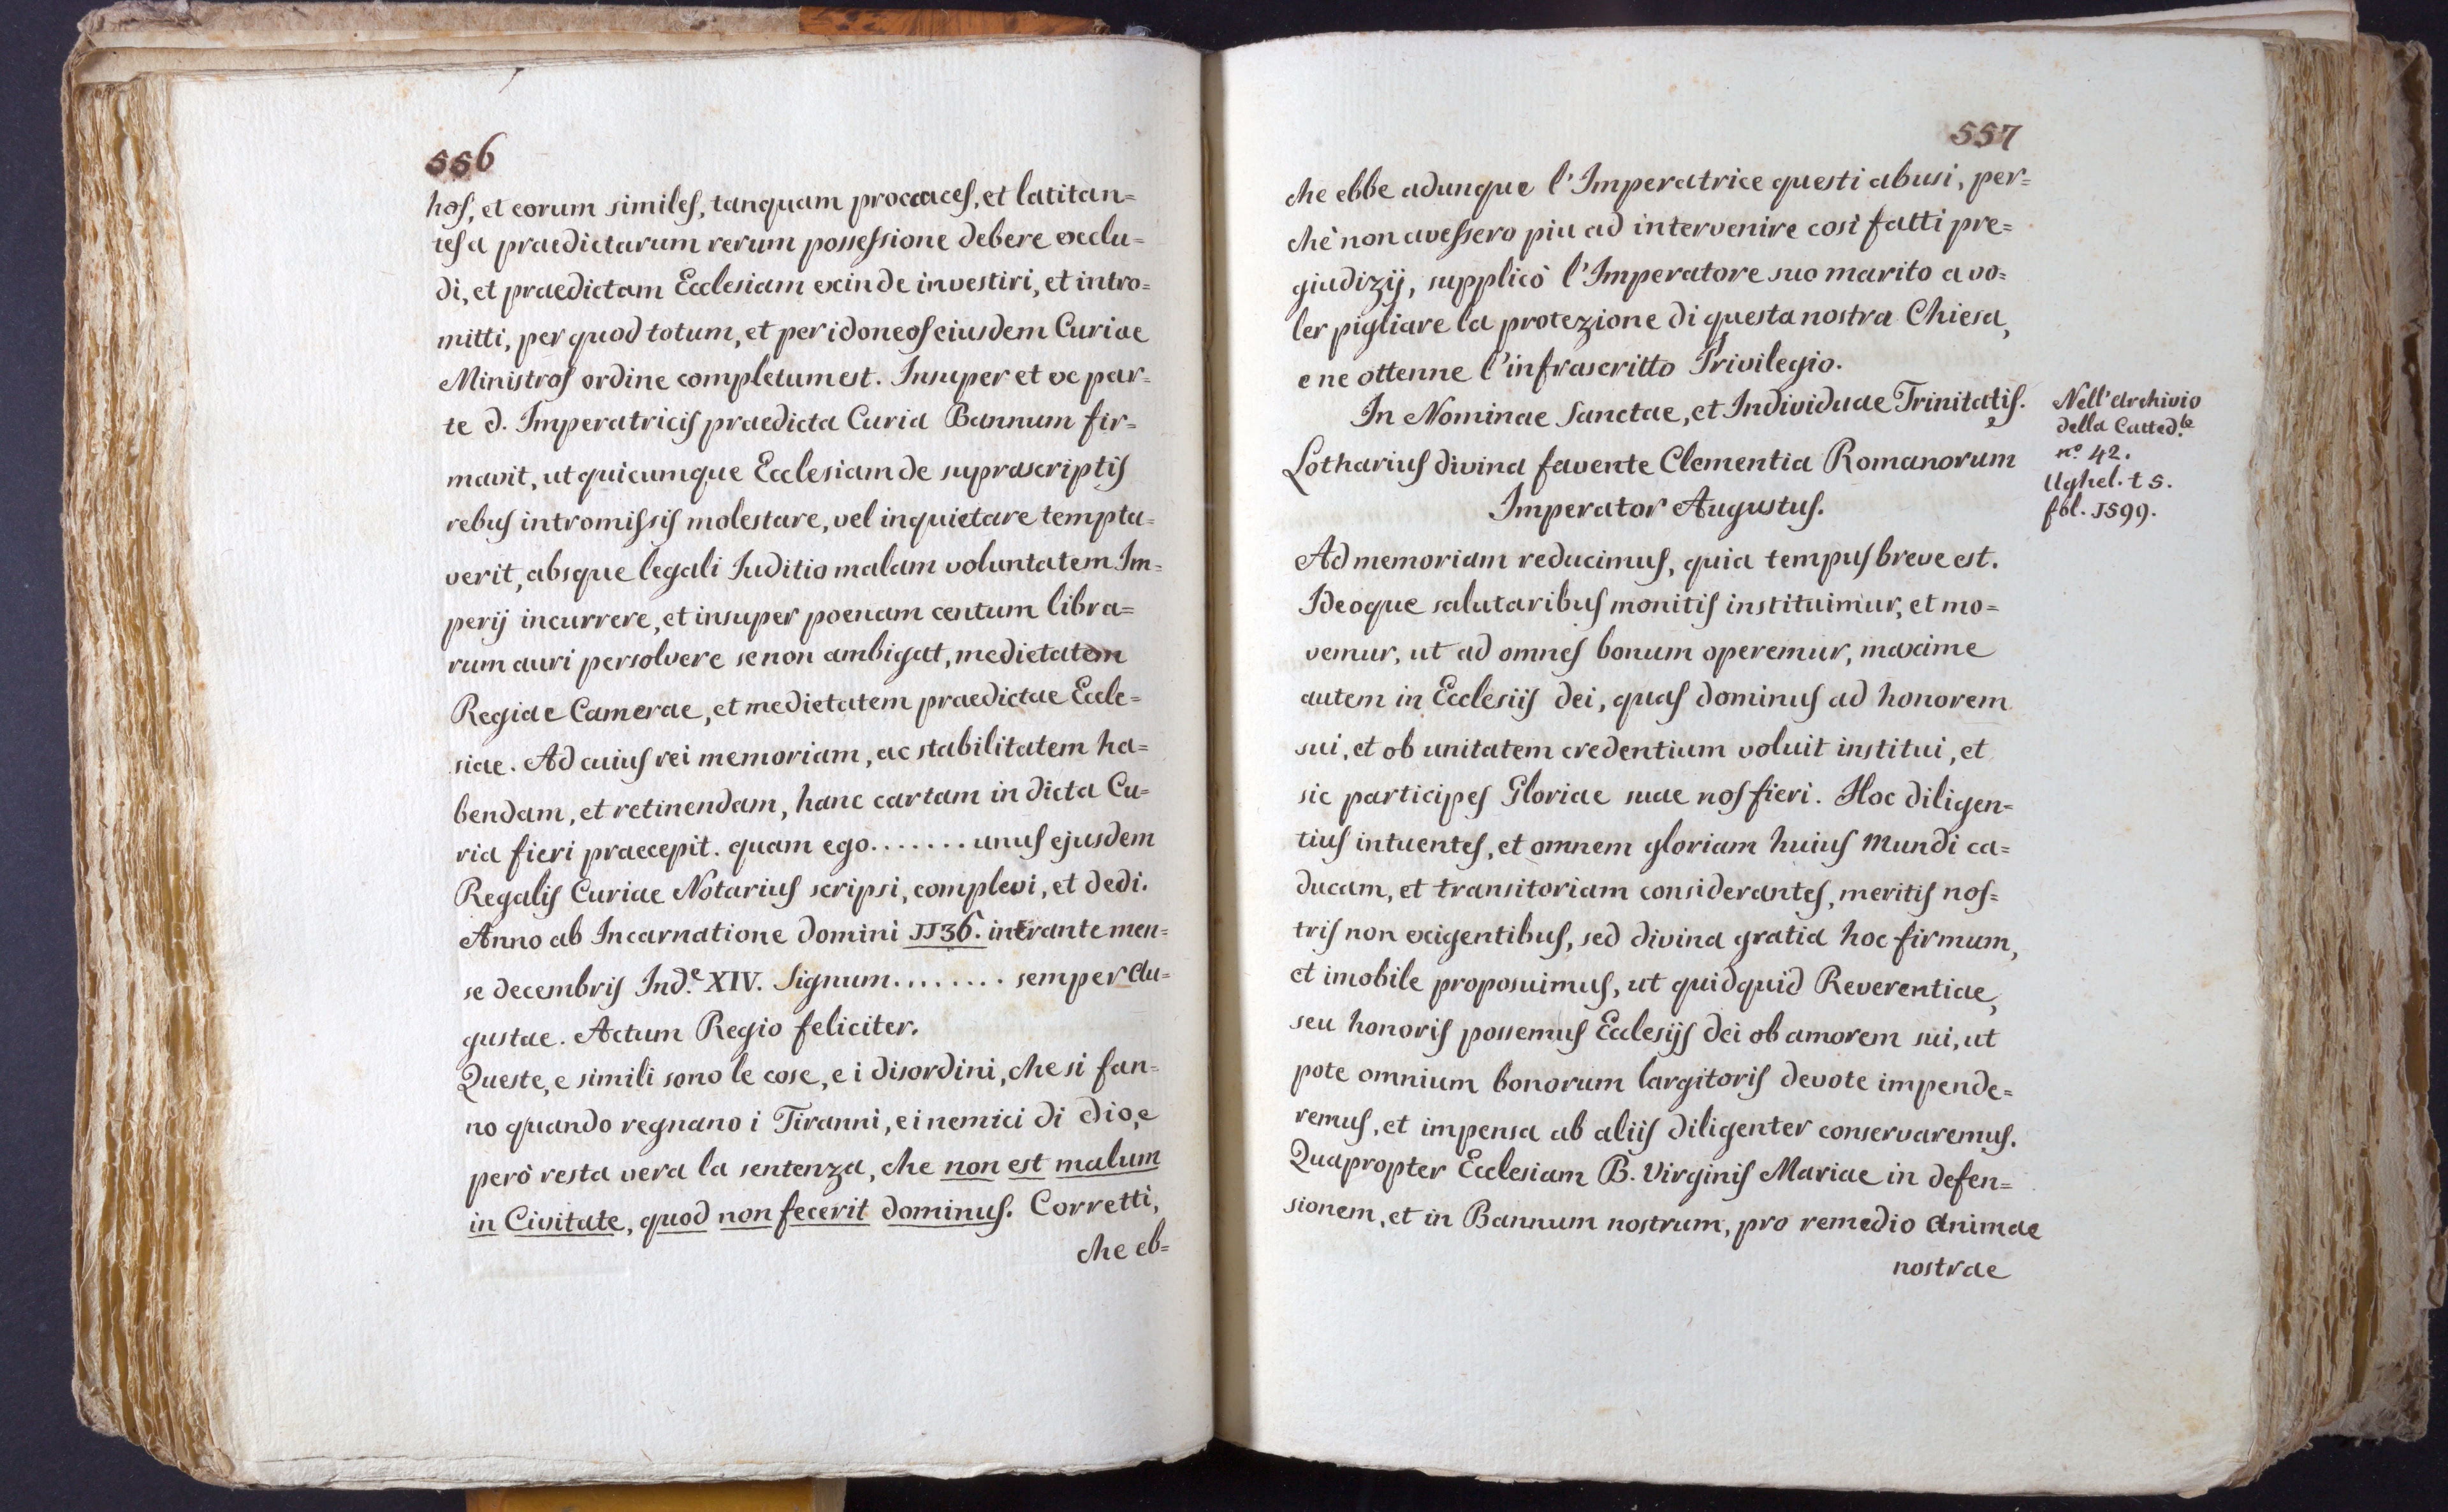 556
hos, et eorum similes, tanquam proccaces, et latitan=
tes a praedictarum rerum possessione debere exclu=
di, et praedictam Ecclesiam exinde investiri, et intro=
mitti, per quod totum, et per idoneos eiusdem Curiae
Ministros ordine completum est. Insuper et ex par=
te d. Imperatricis praedicta Curia Bannum fir=
mavit, ut quicumque Ecclesiam de suprascriptis
rebus intromissis molestare, vel inquietare tempta=
verit, absque legali Iuditio malam voluntatem Im=
perij incurrere, et insuper poenam centum libra=
rum auri persolvere se non ambigat, medietatem
Regiae Camerae, et medietatem praedictae Eccle=
siae. Ad cuius rei memoriam, ac stabilitatem ha=
bendam, et retinendam, hanc cartam in dicta Cu=
ria fieri praecepit. quam ego....... unus ejusdem
Regalis Curiae Notarius scripsi, complevi, et dedi.
Anno ab Incarnatione Domini 1136. intrante men=
se decembris Ind.e XIV. Signum........ semper Au=
gustae. Actum Regio feliciter.
Queste, e simili sono le cose, e i disordini, che si fan=
no quando regnano i Tiranni, e i nemici di dio, e
però resta vera la sentenza, che non est malum
in Civitate, quod non fecerit dominus. Corretti,
che eb=
557
che ebbe adunque l'Imperatrice questi abusi, per=
chè non avessero piu ad intervenire così fatti pre=
giudizij, supplicò l'Imperatore suo marito a vo=
ler pigliare la protezione di questa nostra Chiesa,
e ne ottenne l'infrascritto Privilegio.
In Nominae Sanctae, et Individuae Trinitatis.
Lotharius divina favente Clementia Romanorum
Imperator Augustus.
Nell'Archivio
della Catted.le
n.o 42.
Ughel. t 5.
fol. 1599.
Ad memoriam reducimus, quia tempus breve est.
Ideoque salutaribus monitis instituimur, et mo=
vemur, ut ad omnes bonum operemur, maxime
autem in Ecclesiis dei, quas dominus ad honorem
sui, et ob unitatem credentium voluit institui, et
sic participes Gloriae suae nos fieri. Hoc diligen=
tius intuentes, et omnem gloriam huius Mundi ca=
ducam, et transitoriam considerantes, meritis nos=
tris non exigentibus, sed divina gratia hoc firmum,
et imobile proposuimus, ut quidquid Reverentiae,
seu honoris possemus Ecclesijs dei ob amorem sui, ut
pote omnium bonorum largitoris devote impende=
remus, et impensa ab aliis diligenter conservaremus.
Quapropter Ecclesiam B. Virginis Mariae in defen=
sionem, et in Bannum nostrum, pro remedio Animae
nostrae